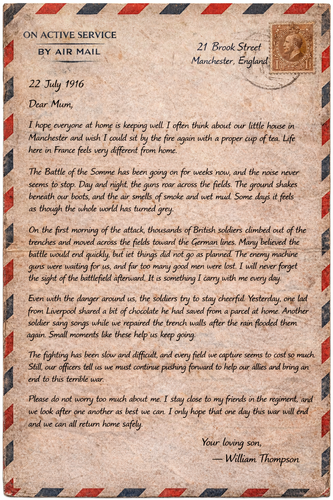 ON ACTIVE SERVICE
BY AIR MAIL
21 Brook Street
Manchester, England
22 July 1916
Dear Mum,
I hope everyone at home is keeping well. I often think about our little house in
Manchester and wish I could sit by the fire again with a proper cup of tea. Life
here in France feels very different from home.
The Battle of the Somme has been going on for weeks now, and the noise never
seems to stop. Day and night, the guns roar across the fields. The ground shakes
beneath our boots, and the air smells of smoke and wet mud. Some days it feels
as though the whole world has turned grey.
On the first morning of the attack, thousands of British soldiers climbed out of the
trenches and moved across the fields toward the German lines. Many believed the
battle would end quickly, but iet things did not go as planned. The enemy machine
guns were waiting for us, and far too many good men were lost. I will never forget
the sight of the battlefield afterward. It is something I carry with me every day.
Even with the danger around us, the soldiers try to stay cheerful. Yesterday, one lad
from Liverpool shared a bit of chocolate he had saved from a parcel at home. Another
soldier sang songs while we repaired the trench walls after the rain flooded them
again. Small moments like these help us keep going.
The fighting has been slow and difficult, and every field we capture seems to cost so much.
Still, our officers tell us we must continue pushing forward to help our allies and bring an
end to this terrible war.
Please do not worry too much about me. I stay close to my friends in the regiment, and
we look after one another as best we can. I only hope that one day this war will end
and we can all return home safely.
Your loving son,
— William Thompson